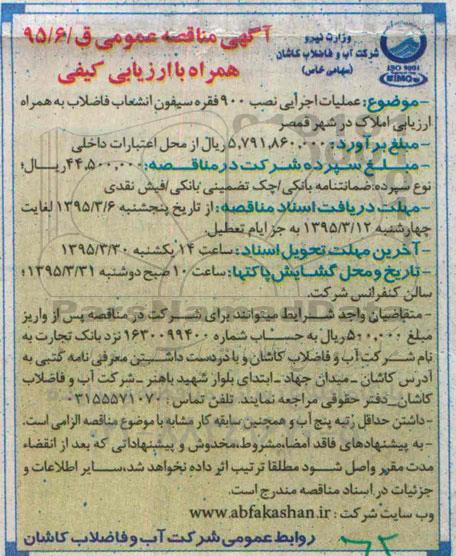 آگهی مناقصه عمومی ق/۹۵/۶
همراه با ارزیابی کیفی
وزارت نیرو
شرکت آب و فاضلاب کاشان
(سهامی خاص)
ISO 9001
-موضوع: عملیات اجرایی نصب ۹۰۰ فقره سیفون انشعاب فاضلاب به همراه
ارزیابی املاک در شهر قمصر
-مبلغ برآورد: ۵,۷۹۱,۸۶۰,۰۰۰ ریال از محل اعتبارات داخلی
-مبلغ سپرده شرکت در مناقصه: ۴۴,۵۰۰,۰۰۰ ریال؛
نوع سپرده: ضمانتنامه بانکی/چک تضمینی بانکی/فیش نقدی
-مهلت دریافت اسناد مناقصه: از تاریخ پنجشنبه ۱۳۹۵/۳/۶ لغایت
چهارشنبه ۱۳۹۵/۳/۱۲ به جز ایام تعطیل.
-آخرین مهلت تحویل اسناد: ساعت ۱۴ یکشنبه ۱۳۹۵/۳/۳۰
-تاریخ و محل گشایش پاکتها: ساعت ۱۰ صبح دوشنبه ۱۳۹۵/۳/۳۱؛
سالن کنفرانس شرکت.
-متقاضیان واجد شرایط میتوانند برای شرکت در مناقصه پس از واریز
مبلغ ۵۰۰,۰۰۰ ریال به حساب شماره ۱۶۳۰۰۹۹۴۰۰ نزد بانک تجارت به
نام شرکت آب و فاضلاب کاشان و با در دست داشتن معرفی نامه کتبی به
آدرس کاشان _میدان جهاد_ابتدای بلوار شهید باهنر _شرکت آب و فاضلاب
کاشان_ دفتر حقوقی مراجعه نمایند. تلفن تماس: ۰۳۱۵۵۵۷۱۰۷۰
-داشتن حداقل رتبه پنج آب و همچنین سابقه کار مشابه با موضوع مناقصه الزامی است.
-به پیشنهادهای فاقد امضا، مشروط، مخدوش و پیشنهاداتی که بعد از انقضاء
مدت مقرر واصل شود مطلقا ترتیب اثر داده نخواهد شد، سایر اطلاعات و
جزئیات در اسناد مناقصه مندرج است.
وب سایت شرکت: www.abfakashan.ir
روابط عمومی شرکت آب و فاضلاب کاشان